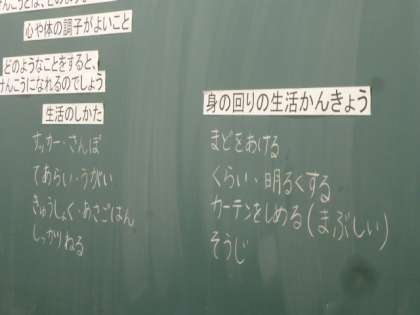 けんこうとは、どのよう
心や体の調子がよいこと
どのようなことをすると、
けんこうになれるのでしょう
生活のしかた
サッカー・さんぽ
てあらい・うがい
きゅうしょく・あさごはん
しっかりねる
身の回りの生活かんきょう
まどをあける
くらい・明るくする
カーテンをしめる(まぶしい)
そうじ